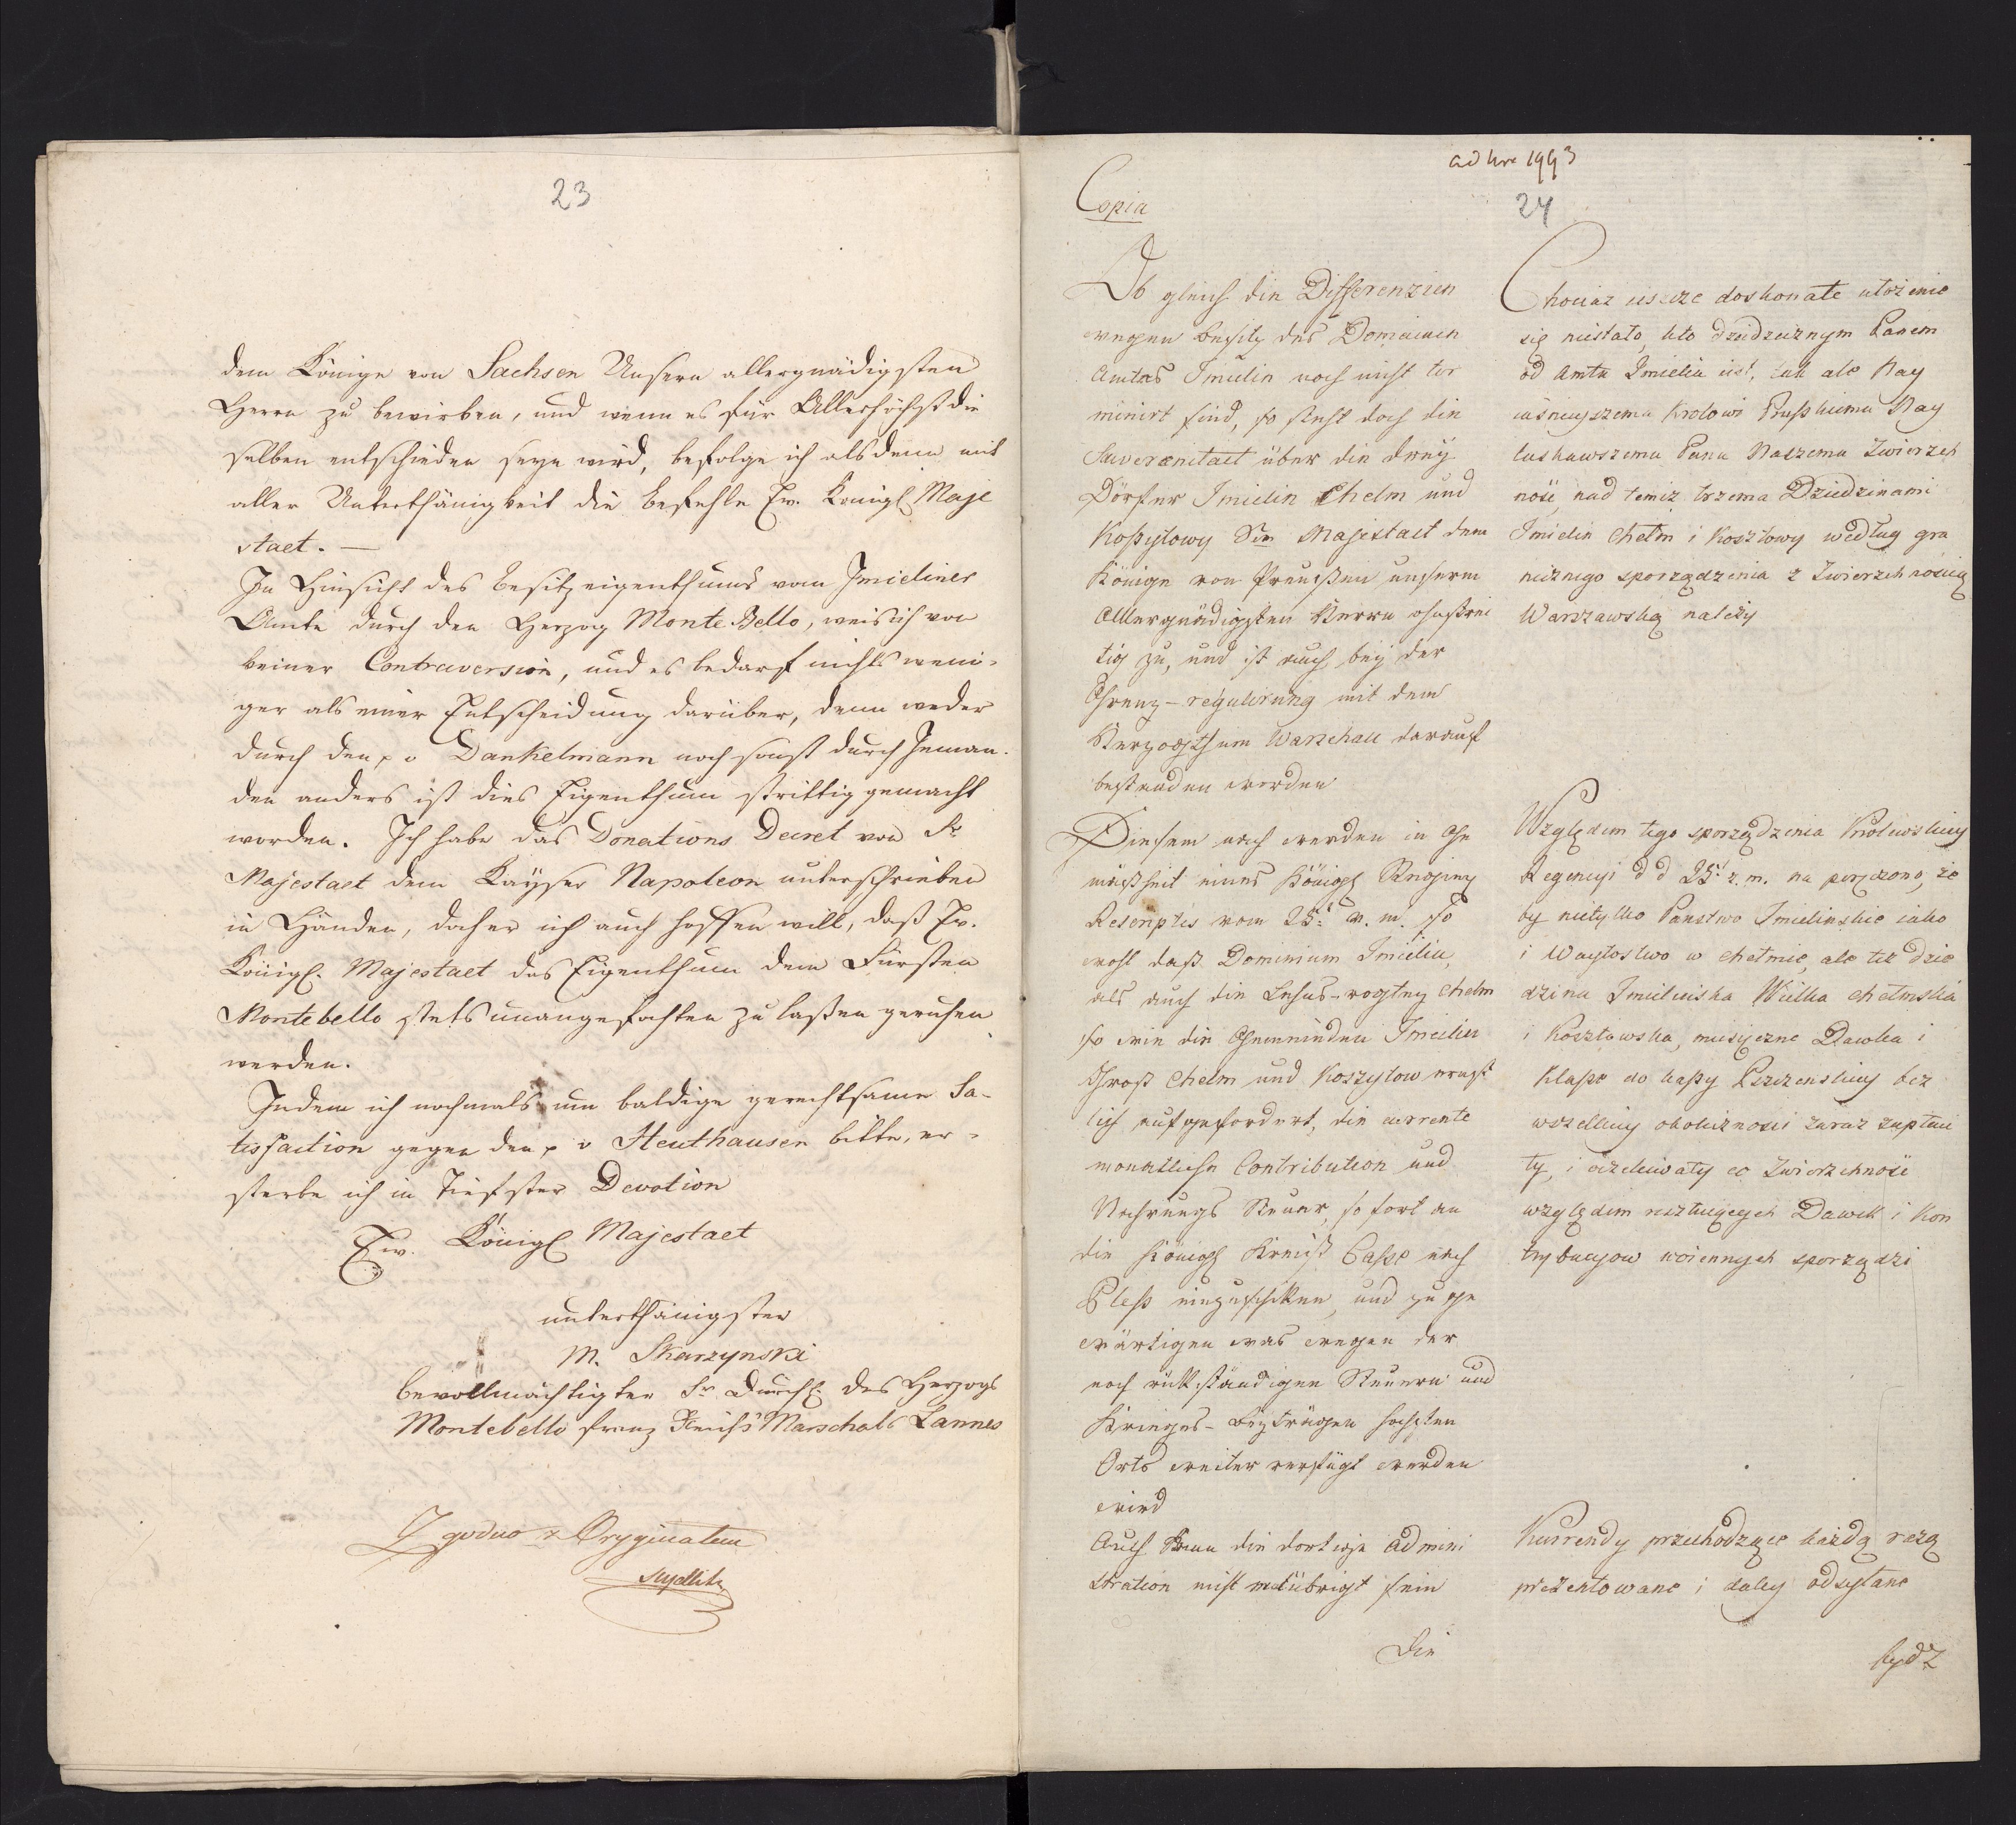 23
dem Könige von Sachsen Unsern allergnädigsten
Herrn zu bewirken, und wenn es für Allerhöchst die
selben entschieden seyn wird, befolge ich alsdenn mit
aller Unterthänigkeit die Befehle Ew. Königl Maje
staet. —
In Hinsicht des Besitz eigenthums vom Imieliner
Amte durch den Herzog Monte Bello, weis ich von
keiner Contraversion, und es bedarf nichts weni-
ger als einer Entscheidung darüber, denn weder
durch den p v Dankelmann noch sonst durch Jeman-
den anders ist dies Eigenthum strittig gemacht
worden. Ich habe das Donations Decret von Sr
Majestaet dem Kayser Napoleon unterschrieben
in Händen, daher ich auch hoffen will, daß Ew.
Königl. Majestaet das Eigenthum dem Fürsten
Montebello stets unangefochten zu laßen geruhen
werden.
Indem ich nochmals um baldige gerechtsame Sa-
tisfaction gegen den p v Heuthausen bitte, er-
sterbe ich in Tiefster Devotion
Ew. Königl Majestaet
unterthänigster
M. Skarzynski
bevollmächtigter Sr Durchl. des Herzogs
Montebello franz Reichs Marschals Lannes
Zgodno z Oryginałem
ad Nro 1993
24
Copia
Ob gleich die Differenzien
wegen Besitz des Domainen
Amtes Imielin noch nicht ter
minirt sind, so steht doch die
Suveraenitaet über die drey
Dörfer Imielin Chelm und
Koßytowy Sr Majestaet dem
Könige von Preußen unserm
Allergnädigsten Herrn ohnstrei
tig zu, und ist auch bey der
Grenz-regulirung mit dem
Herzogthum Warschau darauf
bestanden worden
Diesem nach werden in Ge
mäßheit eines Königl Regierg
Rescriptis vom 25t v. m. so
wohl daß Dominium Imielin,
als auch die Lehns-vogtey Chelm
so wie die Gemeinden Imielin
Groß Chelm und Koszytow ernst
lich aufgefordert, die currente
monatliche Contribution und
Nahrungs Steuer, so fort an
die Königl Kreiß Casse nach
Pless einzuschicken, und zu ge
wärtigen was wegen der
noch rückständigen Steuern und
Krieges-Beyträgen höchsten
Orts weiter verfügt werden
wird
Auch kann die dortige Admini
stration nicht entübrigt sein
die
Chociaz ieszcze doskonałe ułożenie
się niestało, kto dziedzicznym Panem
od Amtu Imielin iest, tak ale Nay
iaśnieyszemu Krolowi Pruskiemu Nay
łaskawszemu Panu Naszemu Zwierzch
ność nad temiż trzema Dziedzinami
Imielin Chełm i Kosztowy według gra
nicznego sporządzenia z Zwierzchnością
Warszawską należy
Względem tego sporządzenia Krolewskiey
Regencyi d d 25t z. m. na porzczono, że
by nietylko Panstwo Imielinskie iako
i Waytostwo w Chełmie, ale też dzie
dzina Imielinska Wielka Chełmska
i Kosztowska, miesięczne Dawka i
Klaße do kaßy Pszczenskiey bez
wszelkiey okoliczności zaraz zapłaci
ły, i oczekiwały co Zwierzchność
względem resztuiących Dawek i Kon
trybucyow woiennych sporządzi
Kurrendy przechodzące każdą rażą
prezentowane i daley odsyłane
bydz